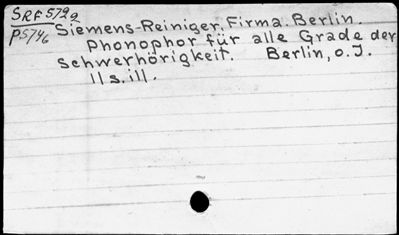 SRF 5729
P5746
Siemens-Reiniger. Firma. Berlin.
Phonophor für alle Grade der
Schwerhörigkeit. Berlin, o. J.
11 s. ill.